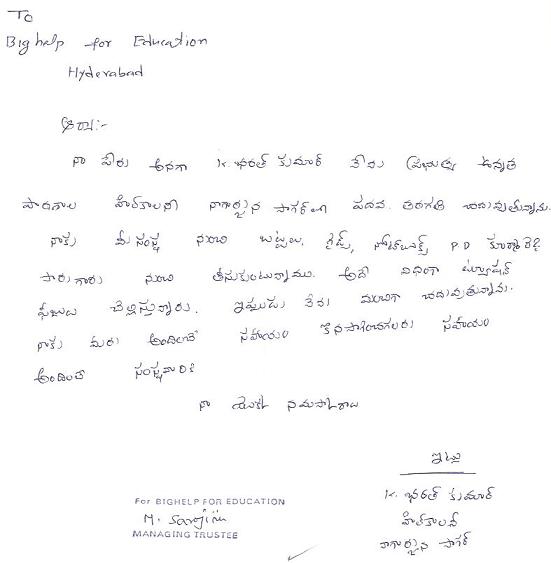 To
Big help for Education
Hyderabad
ఆర్యా:-
నా పేరు అనగా K. భరత్ కుమార్ నేను ప్రభుత్వ ఉన్నత
పాఠశాల హిల్‌కాలనీ నాగార్జున సాగర్‌లో పదవ తరగతి చదువుతున్నాను.
నాకు మీ సంస్థ నుంచి బట్టలు, గైడ్స్, నోట్‌బుక్స్ P.D
సారు గారు నుంచి తీసుకుంటున్నాము. అదే విధంగా ట్యూషన్
ఫీజులు చెల్లిస్తున్నారు. ఇప్పుడు నేను మంచిగా చదువుతున్నాను.
నాకు మీరు అందించే సహాయం కొనసాగించగలరు సహాయం
అందించే సంస్థవారికి
నా యొక్క నమస్కారాలు
ఇట్లు
K. భరత్ కుమార్
హిల్‌కాలనీ
నాగార్జున సాగర్
For BIGHELP FOR EDUCATION
M. Sarojini
MANAGING TRUSTEE